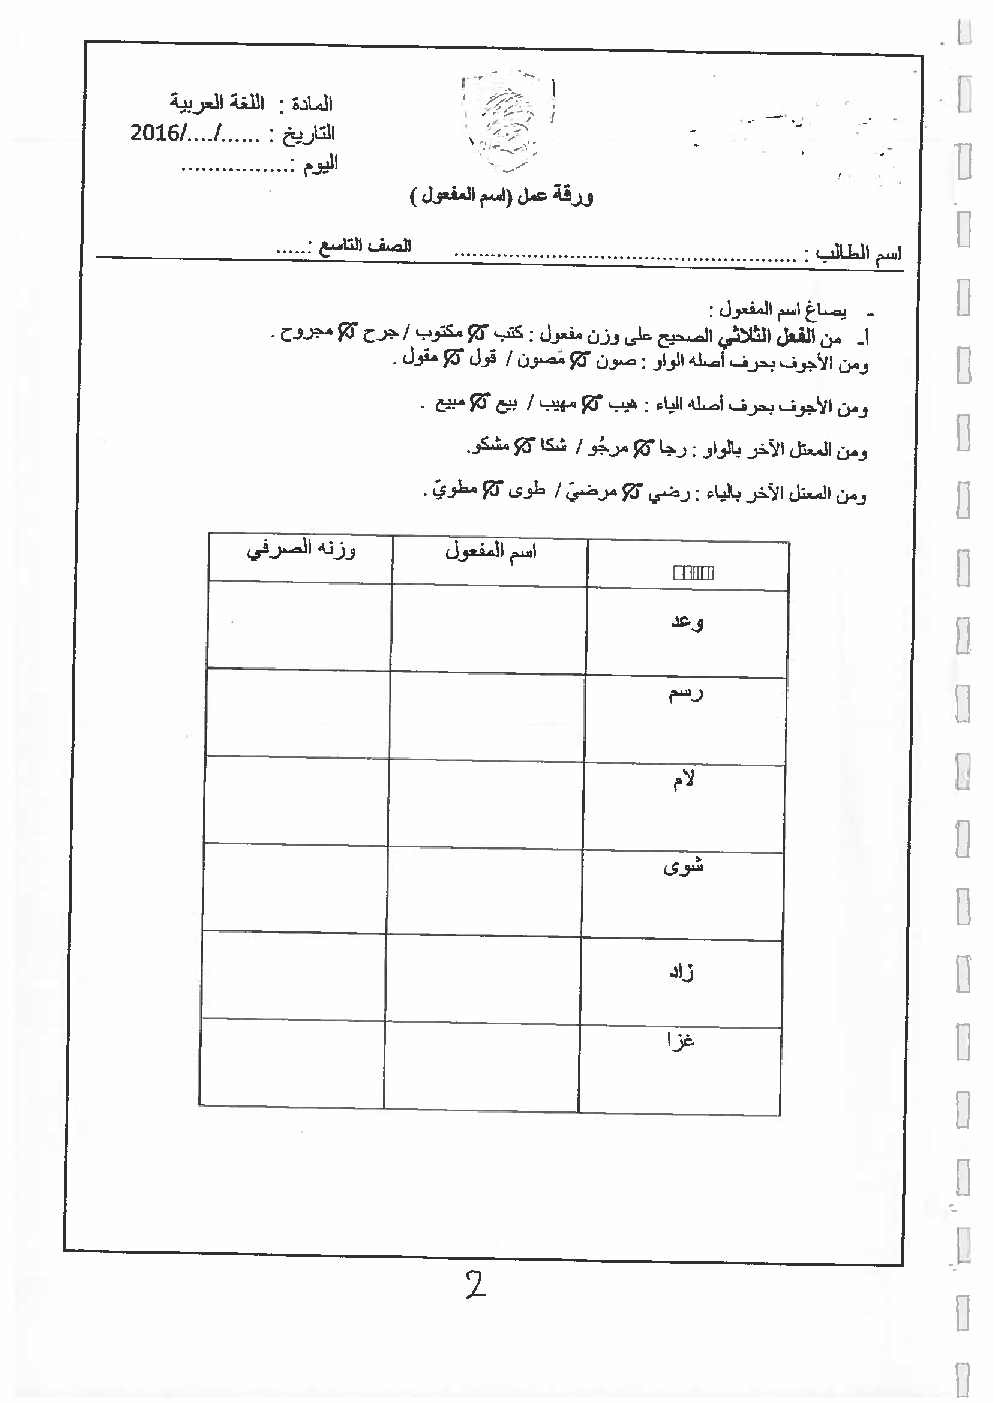 المادة : اللغة العربية
التاريخ : ....../..../2016
اليوم :................
ورقة عمل (اسم المفعول )
اسم الطالب : ....................................................... الصف التاسع :.....
- يصاغ اسم المفعول :
أ- من الفعل الثلاثي الصحيح على وزن مفعول : كتب مكتوب / جرح مجروح .
ومن الأجوف بحرف أصله الواو : صون مَصون / قول مقول .
ومن الأجوف بحرف أصله الياء : هيب مهيب / بيع مبيع .
ومن المعتل الآخر بالواو : رجا مرجُو / شكا مشكو.
ومن المعتل الآخر بالياء : رضي مرضيّ / طوى مطويّ .
اسم المفعول وزنه الصرفي
وعد
رسم
لام
شوى
زاد
غزا
2